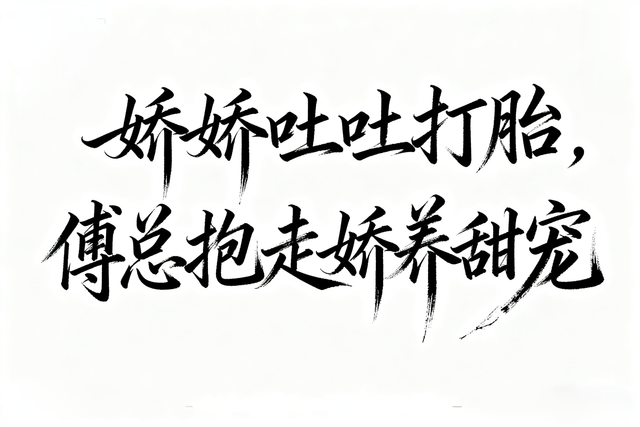 娇娇吐吐打胎，
傅总抱走娇养甜宠